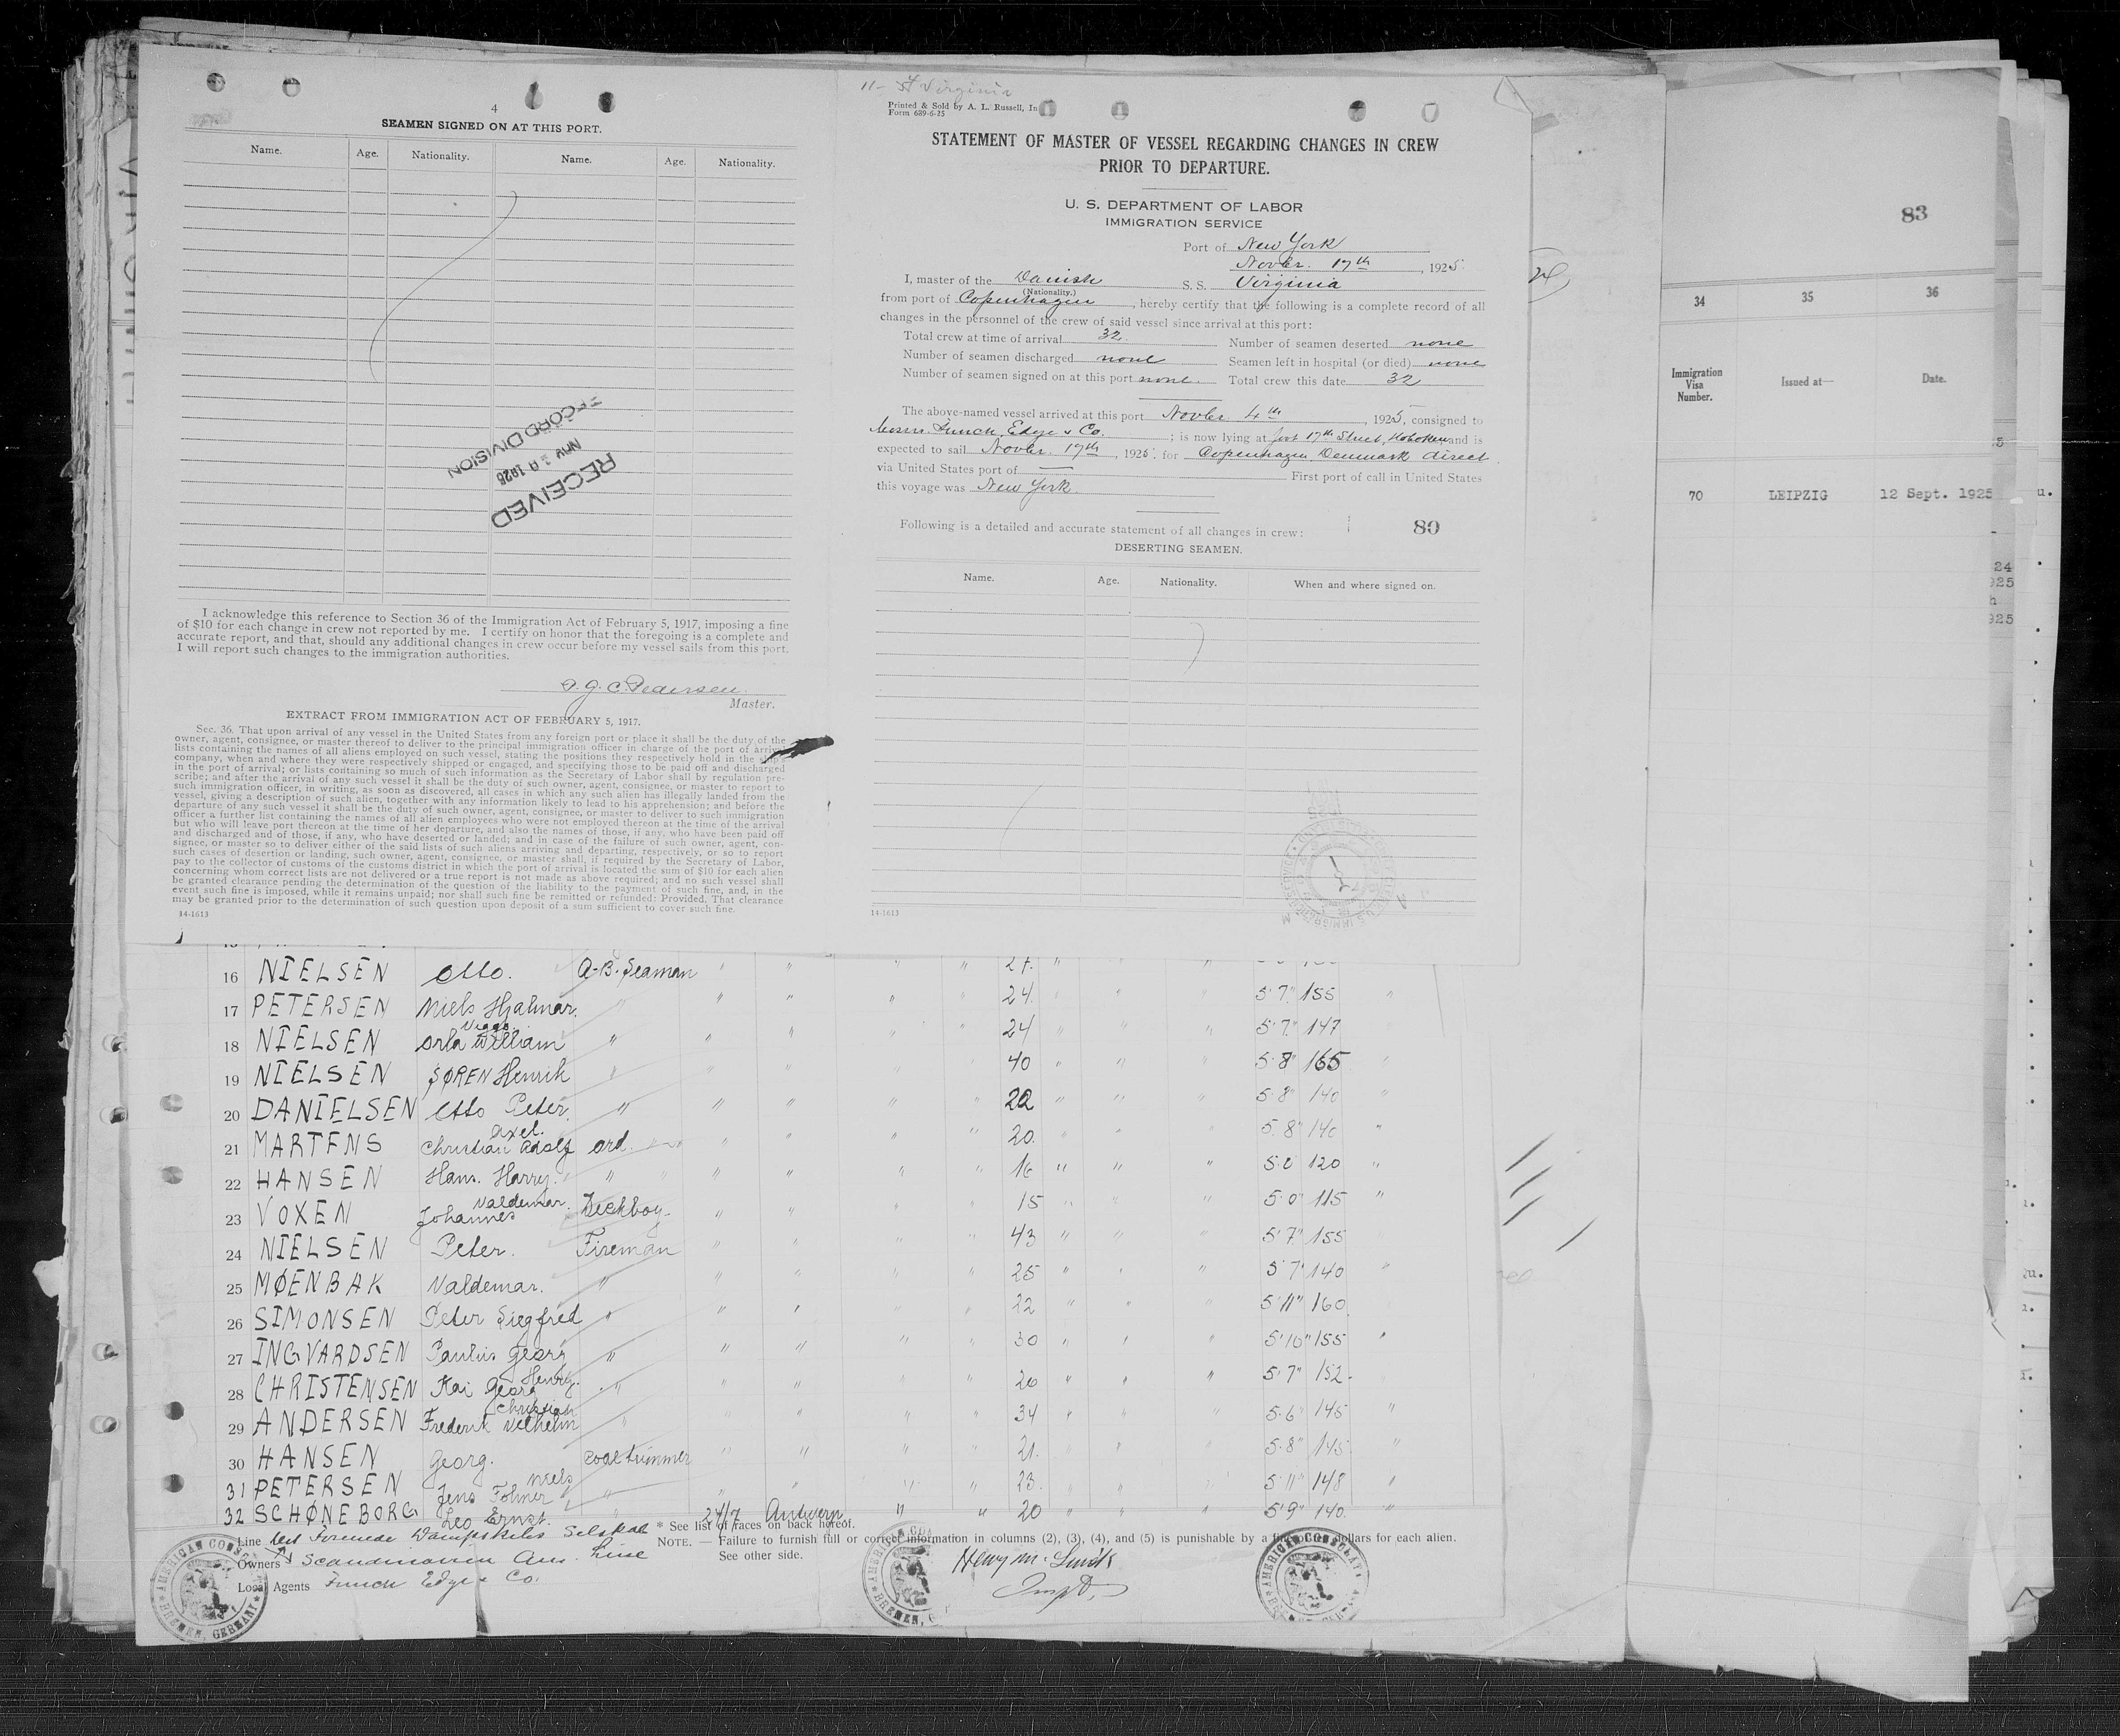 4
SEAMEN SIGNED ON AT THIS PORT.
Name. Age. Nationality. Name. Age. Nationality.
RECORD DIVISION
1925
RECEIVED
I acknowledge this reference to Section 36 of the Immigration Act of February 5, 1917, imposing a fine
of $10 for each change in crew not reported by me. I certify on honor that the foregoing is a complete and
accurate report, and that, should any additional changes in crew occur before my vessel sails from this port,
I will report such changes to the immigration authorities.
J. C. Pedersen
Master.
EXTRACT FROM IMMIGRATION ACT OF FEBRUARY 5, 1917.
Sec. 36. That upon arrival of any vessel in the United States from any foreign port or place it shall be the duty of the
owner, agent, consignee, or master thereof to deliver to the principal immigration officer in charge of the port of arrival
lists containing the names of all aliens employed on such vessel, stating the positions they respectively hold in the ship's
company, when and where they were respectively shipped or engaged, and specifying those to be paid off and discharged
in the port of arrival; or lists containing so much of such information as the Secretary of Labor shall by regulation pre-
scribe; and after the arrival of any such vessel it shall be the duty of such owner, agent, consignee, or master to report to
such immigration officer, in writing, as soon as discovered, all cases in which any such alien has illegally landed from the
vessel, giving a description of such alien, together with any information likely to lead to his apprehension; and before the
departure of any such vessel it shall be the duty of such owner, agent, consignee, or master to deliver to such immigration
officer a further list containing the names of all alien employees who were not employed thereon at the time of the arrival
but who will leave port thereon at the time of her departure, and also the names of those, if any, who have been paid off
and discharged and of those, if any, who have deserted or landed; and in case of the failure of such owner, agent, con-
signee, or master so to deliver either of the said lists of such aliens arriving and departing, respectively, or so to report
such cases of desertion or landing, such owner, agent, consignee, or master shall, if required by the Secretary of Labor,
pay to the collector of customs of the customs district in which the port of arrival is located the sum of $10 for each alien
concerning whom correct lists are not delivered or a true report is not made as above required; and no such vessel shall
be granted clearance pending the determination of the question of the liability to the payment of such fine, and, in the
event such fine is imposed, while it remains unpaid; nor shall such fine be remitted or refunded: Provided, That clearance
may be granted prior to the determination of such question upon deposit of a sum sufficient to cover such fine.
14-1613
11- Virginia
Printed & Sold by A. L. Russell, In
Form 689-6-25
STATEMENT OF MASTER OF VESSEL REGARDING CHANGES IN CREW
PRIOR TO DEPARTURE.
U. S. DEPARTMENT OF LABOR
IMMIGRATION SERVICE
Port of New York
Novbr. 17th, 1925.
I, master of the Danish S. S. Virginia
(Nationality.)
from port of Copenhagen, hereby certify that the following is a complete record of all
changes in the personnel of the crew of said vessel since arrival at this port:
Total crew at time of arrival 32. Number of seamen deserted none
Number of seamen discharged none Seamen left in hospital (or died) none
Number of seamen signed on at this port none. Total crew this date 32
The above-named vessel arrived at this port Novbr. 4th, 1925, consigned to
Messrs. Funch, Edye & Co.; is now lying at foot 17th Street, Hoboken and is
expected to sail Novbr. 17th, 1925. for Copenhagen Denmark direct.
via United States port of — First port of call in United States
this voyage was New York.
Following is a detailed and accurate statement of all changes in crew:
80
DESERTING SEAMEN.
Name. Age. Nationality. When and where signed on.
14-1613
83
34 35 36
Immigration Visa Number. Issued at— Date.
70 LEIPZIG 12 Sept. 1925
16 NIELSEN Otto. A-B. Seaman " " " " 27. " " "
17 PETERSEN Niels Hjalmar. " " " " " 24. " " " 5'7" 155 "
18 NIELSEN Orla Viggo William " " " 24 " " " 5'7" 147
19 NIELSEN SØREN Henrik " " " " " 40 " " " 5'8" 165 "
20 DANIELSEN Otto Peter. " " " " " 22 " " " 5'8" 140 "
21 MARTENS Christian Axel. Adolf ord. " " " " 20. " " " 5'8" 140 "
22 HANSEN Hans. Harry. " " " " " 16 " " " 5'0 120 "
23 VOXEN Johannes Valdemar. Deckboy. " " " " 15 " " " 5'0" 115 "
24 NIELSEN Peter. Fireman " " " " 43 " " " 5'7" 155
25 MØENBAK Valdemar. " " " " " 25 " " " 5'7" 140 "
26 SIMONSEN Peter Siegfred " " " " " 22 " " " 5'11" 160.
27 INGVARDSEN Paulus Georg " " " " " 30 " " " 5'10" 155 "
28 CHRISTENSEN Kai Georg Henry. " " " " " 20 " " " 5'7" 152.
29 ANDERSEN Frederik Christian Vilhelm " " " " " 34 " " " 5'6" 145 "
30 HANSEN Georg. Coal trimmer " " " " 21. " " " 5'8" 145. "
31 PETERSEN Jens Folmer Niels " " " " " 23. " " " 5'11" 148 "
32 SCHØNEBORG Leo Ernst. " 24/7 Antwerp " " 20 " " " 5'9" 140. "
* See list of races on back hereof.
Line Det Forenede Dampskibs Selskab
NOTE. — Failure to furnish full or correct information in columns (2), (3), (4), and (5) is punishable by a fine of dollars for each alien.
Owners Scandinavian Am. Line
See other side.
Local Agents Funch Edye & Co.
Henry M.
AMERICAN CONSUL
BREMEN, GERMANY